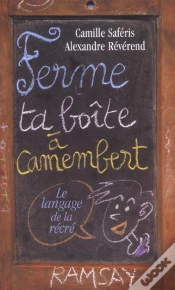 Camille Saféris
Alexandre Révérend
Ferme
ta boîte
à
camembert
Le
langage
de la
récré
RAMSAY
WOOK